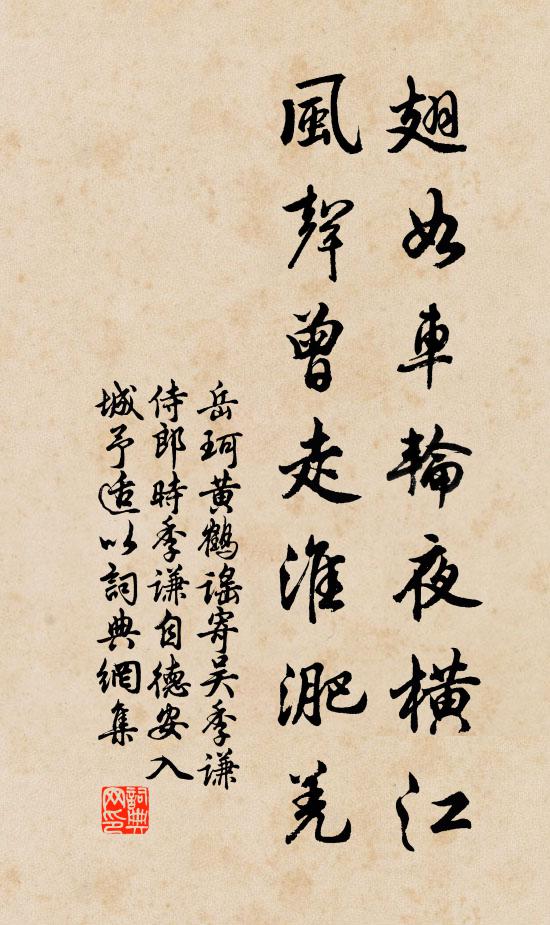 翅如車輪夜橫江
風聲曾走淮淝羌
岳珂黃鶴謠寄吴季謙
侍郎時季謙自德安入
城予适以詞典網集
詞典網印